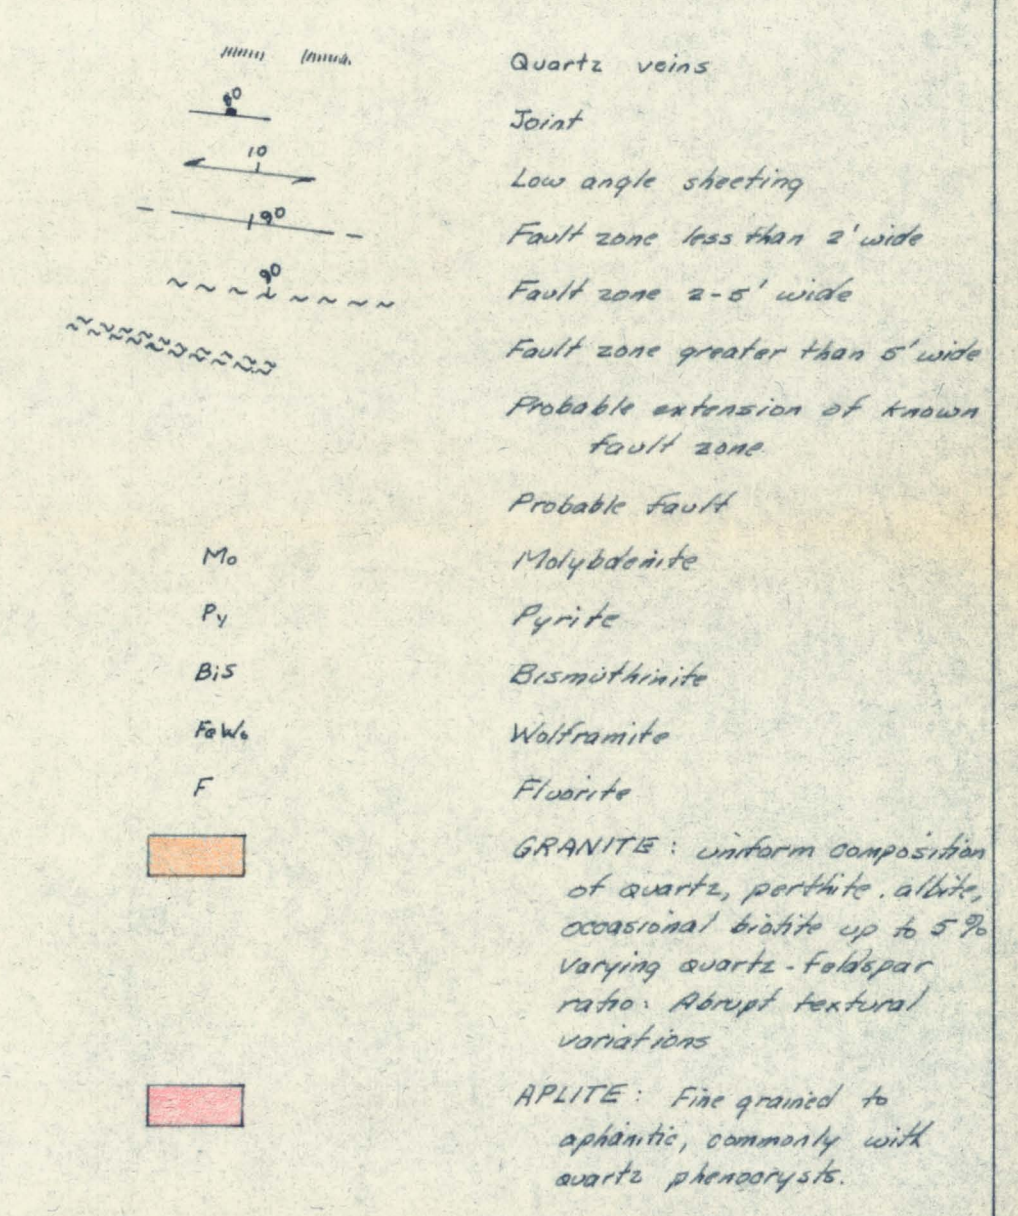 Quartz veins
80 Joint
10 Low angle sheeting
90 Fault zone less than 2' wide
90 Fault zone 2-5' wide
Fault zone greater than 5' wide
Probable extension of known
fault zone
Probable fault
Mo Molybdenite
Py Pyrite
BiS Bismuthinite
FeWo Wolframite
F Fluorite
GRANITE: uniform composition
of quartz, perthite, albite,
occasional biotite up to 5%
Varying quartz-feldspar
ratio. Abrupt textural
variations
APLITE: Fine grained to
aphanitic, commonly with
quartz phenocrysts.